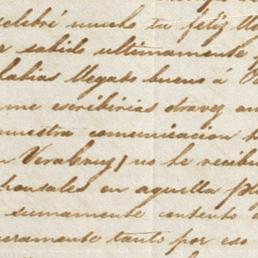 celebré mucho tu feliz
sabido ultimamente
habias llegado bueno á
me escribirias otra vez
nuestra comunicacion
Veracruz, no he
en aquella
sumamente contento
tanto por eso